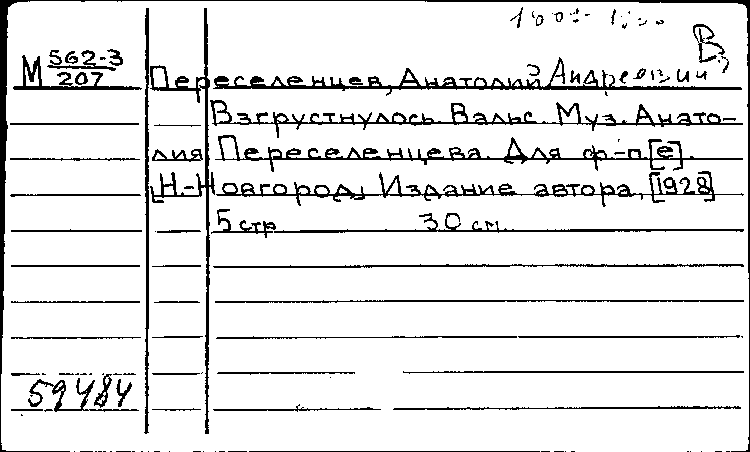 В
М 562-3/207
Переселенцев, Анатолий Андреевич
Взгрустнулось. Вальс. Муз. Анато-
лия Переселенцева. Для ф.-п. [е].
[Н.-Новгород] Издание автора, [1928]
5 стр. 30 см.
59484